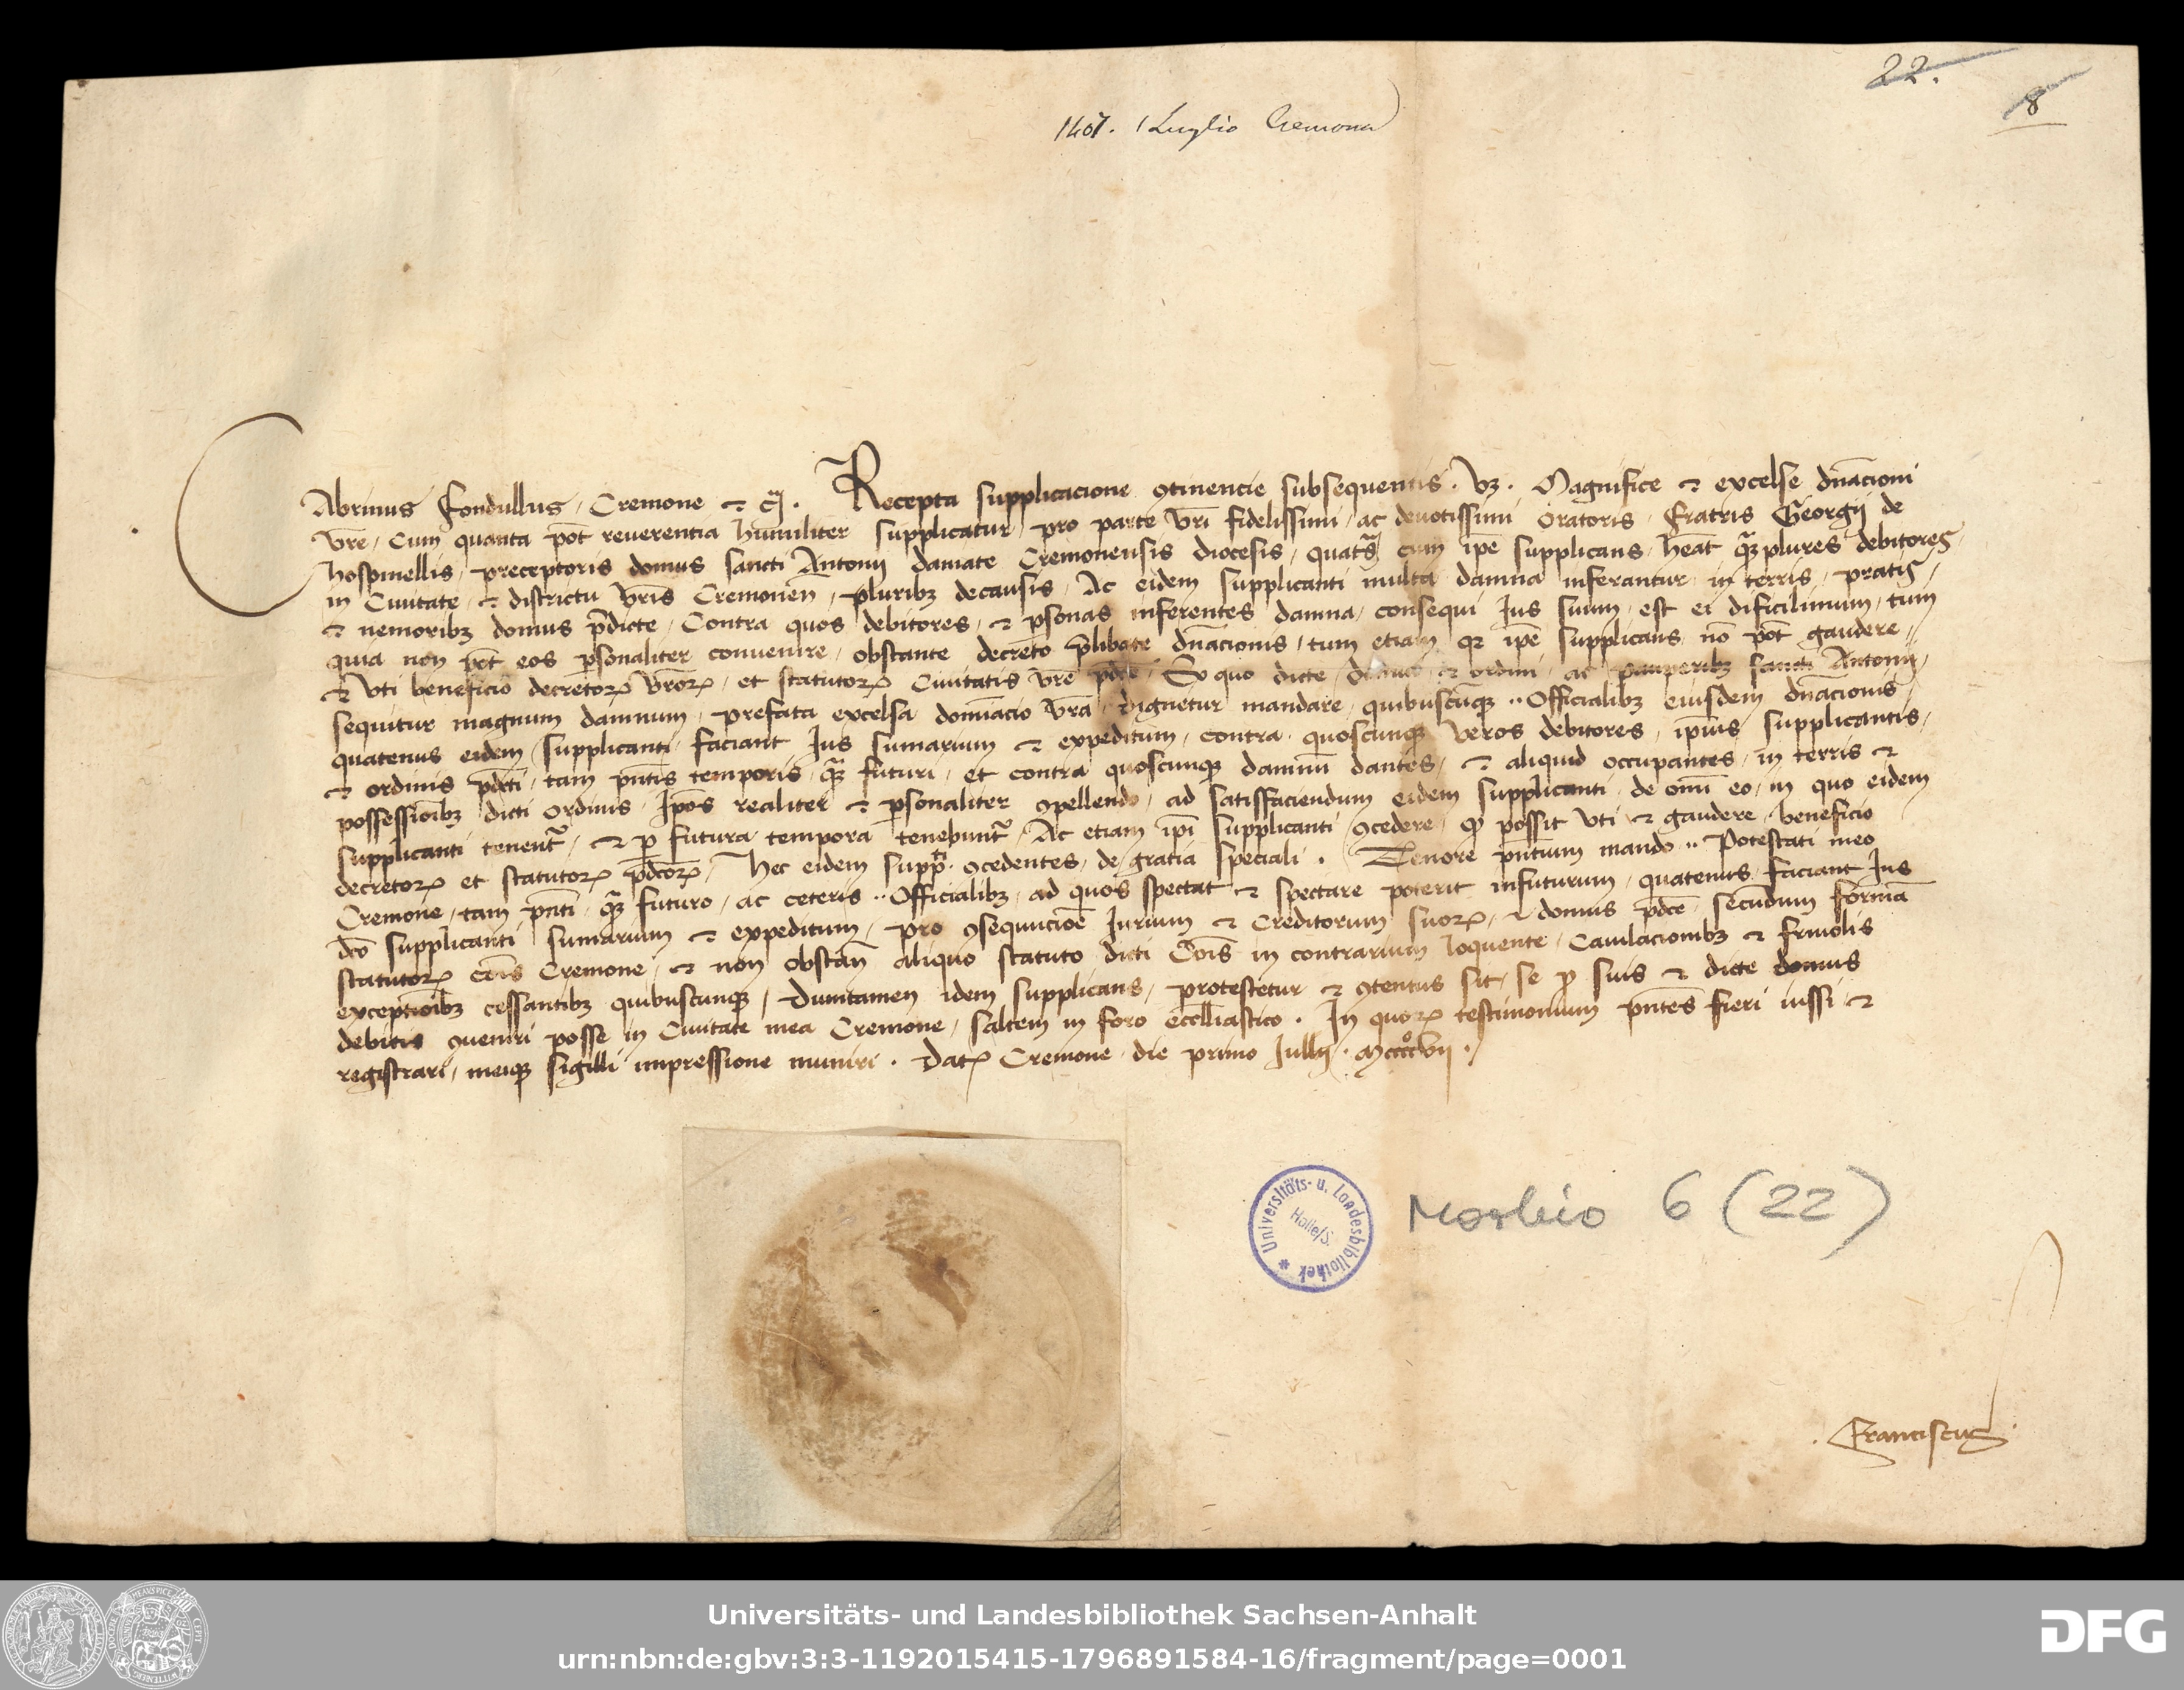 22.
8
1407. 1 Luglio Cremona
Cabrinus Fondullus, Cremone ⁊ c̄. Recepta supplicacione ꝯtinencie subsequentis. Vꝫ. Magnifice ⁊ excelse dn̄acioni
vr̄e, Cum quanta pōt reuerentia humiliter supplicatur, pro parte vr̄i fidelissimi, ac deuotissimi oratoris, Fratris Georgij de
hospinellis, preceptoris domus sancti Antonij damate Cremonensis diocesis, quat cum ip̄e supplicans, hēat ꝗ̄ plures debitores,
in Ciuitate, ⁊ districtu vr̄is Cremoneñ, pluribꝫ decausis, Ac eidem supplicanti multa damna inferantur, in terris, pratis,
⁊ nemoribꝫ domus p̄dicte, Contra quos debitores, ⁊ ꝑsonas inferentes damna, consequi Ius suum, est ei dificilimum, tum
quia non pōt eos ꝑsonaliter conuenire, obstante decreto p̄libate dn̄acionis, tum etiam qꝛ ip̄e supplicans, nō pōt gaudere,
⁊ vti beneficio decretoꝝ vr̄oꝝ, et statutoꝝ Ciuitatis vr̄e p̄dc̄e, Ex quo dicte, domui ⁊ ordini, ac pauperibꝫ sancti Antonij,
sequitur magnum damnum, prefata excelsa domīacio vr̄a, dignetur mandare, quibuscūqꝫ ·· Officialibꝫ eiusdem dn̄acionis,
quatenus eidem supplicanti, faciant Ius sumarium ⁊ expeditum, contra, quoscunqꝫ veros debitores, ip̄ius supplicantis,
⁊ ordinis p̄dc̄ti, tam pn̄tis temporis, ꝗ̄ futuri, et contra quoscunqꝫ damnū dantes, ⁊ aliquid occupantes, in terris ⁊
possessioībꝫ dicti ordinis, Ip̄os realiter ⁊ ꝑsonaliter ꝯpellendo, ad satisfaciendum eidem supplicanti, de omī eo, in quo eidem
supplicanti tenent̄, ⁊ ꝑ futura tempora tenebunt̄, Ac etiam ip̄i supplicanti ꝯcedere, ꝙ possit vti ⁊ gaudere, beneficio
decretoꝝ et statutoꝝ p̄dcōꝝ, Hec eidem supp̄ti. ꝯcedentes, de gratia speciali. Tenore pn̄tium mando ·· Potestati meo
Cremone, tam pn̄ti, ꝗ̄ futuro, ac ceteris ·· Officialibꝫ, ad quos spectat ⁊ spectare poterit infuturum, quatenus, faciant Ius
dc̄o supplicanti sumarium ⁊ expeditum, pro ꝯsequucioē Iurium ⁊ Creditorum suoꝝ, ⁊ domus p̄dc̄e, secundum formā
statutoꝝ cōis Cremone, ⁊ non obstañ aliquo statuto dicti Cōis in contrarium loquente, Cauilacionibꝫ ⁊ friuolis
exceptioībꝫ cessantibꝫ quibuscunqꝫ, Dumtamen idem supplicans, protestetur ⁊ ꝯtentus sit, se ꝓ suis ⁊ dicte domus
debitis ꝯueniri posse in Ciuitate mea Cremone, saltem in foro ecc̄lliastico. In quoꝝ testimonium pn̄tes fieri iussi ⁊
registrari, meiqꝫ sigilli impressione muniri. Datꝝ Cremone die primo Iullij. Mccccͦvij.
Universitäts- u. Landesbibliothek * Halle/S.
Morbio 6 (22)
. Franciscus .
Universitäts- und Landesbibliothek Sachsen-Anhalt
urn:nbn:de:gbv:3:3-1192015415-1796891584-16/fragment/page=0001
DFG